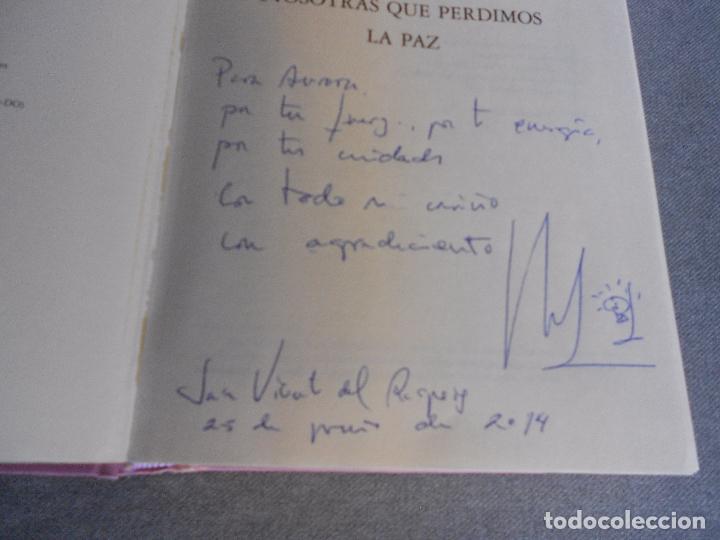 NOSOTRAS QUE PERDIMOS
LA PAZ
Para Aurora
por tu fuerz.., por t energía,
por tus cuidados
Con todo mi cariño
con agradecimiento
San Vicent del Raspeig
25 de junio de 2014
todocoleccion.net